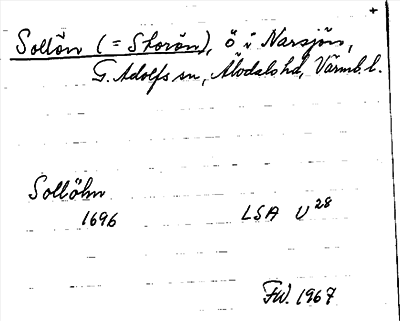 +
Sollön (= Storön), ö i Narsjön,
G. Adolfs sn, Älvdals hd, Värml. l.
Sollöhn
1696 LSA U 28
FW. 1967